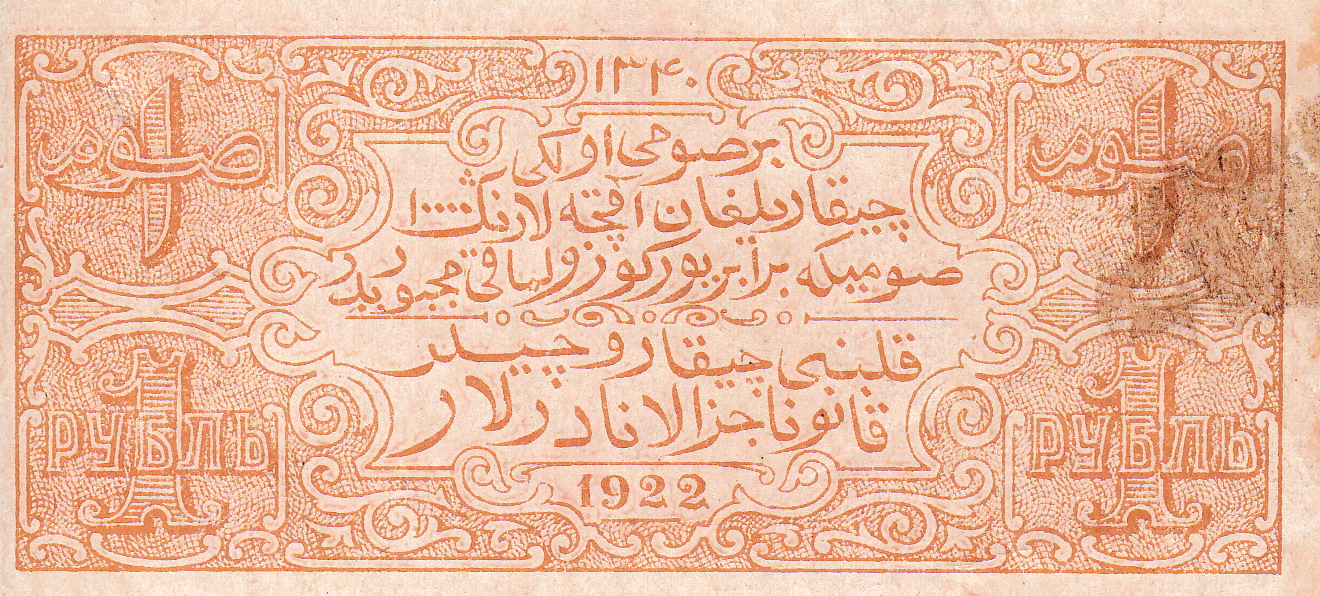 ۱۳۴۰
۱ صوم
۱ صوم
بر صومی اولکی
چیقاریلغان اقچه لارنک ۱۰۰۰۰
صومیکه برابر یورکوزولیاقی مجبوریدر
قلبنی چیقاروچیلر
قانونا جزالانادرلار
1 РУБЛЬ
1 РУБЛЬ
1922